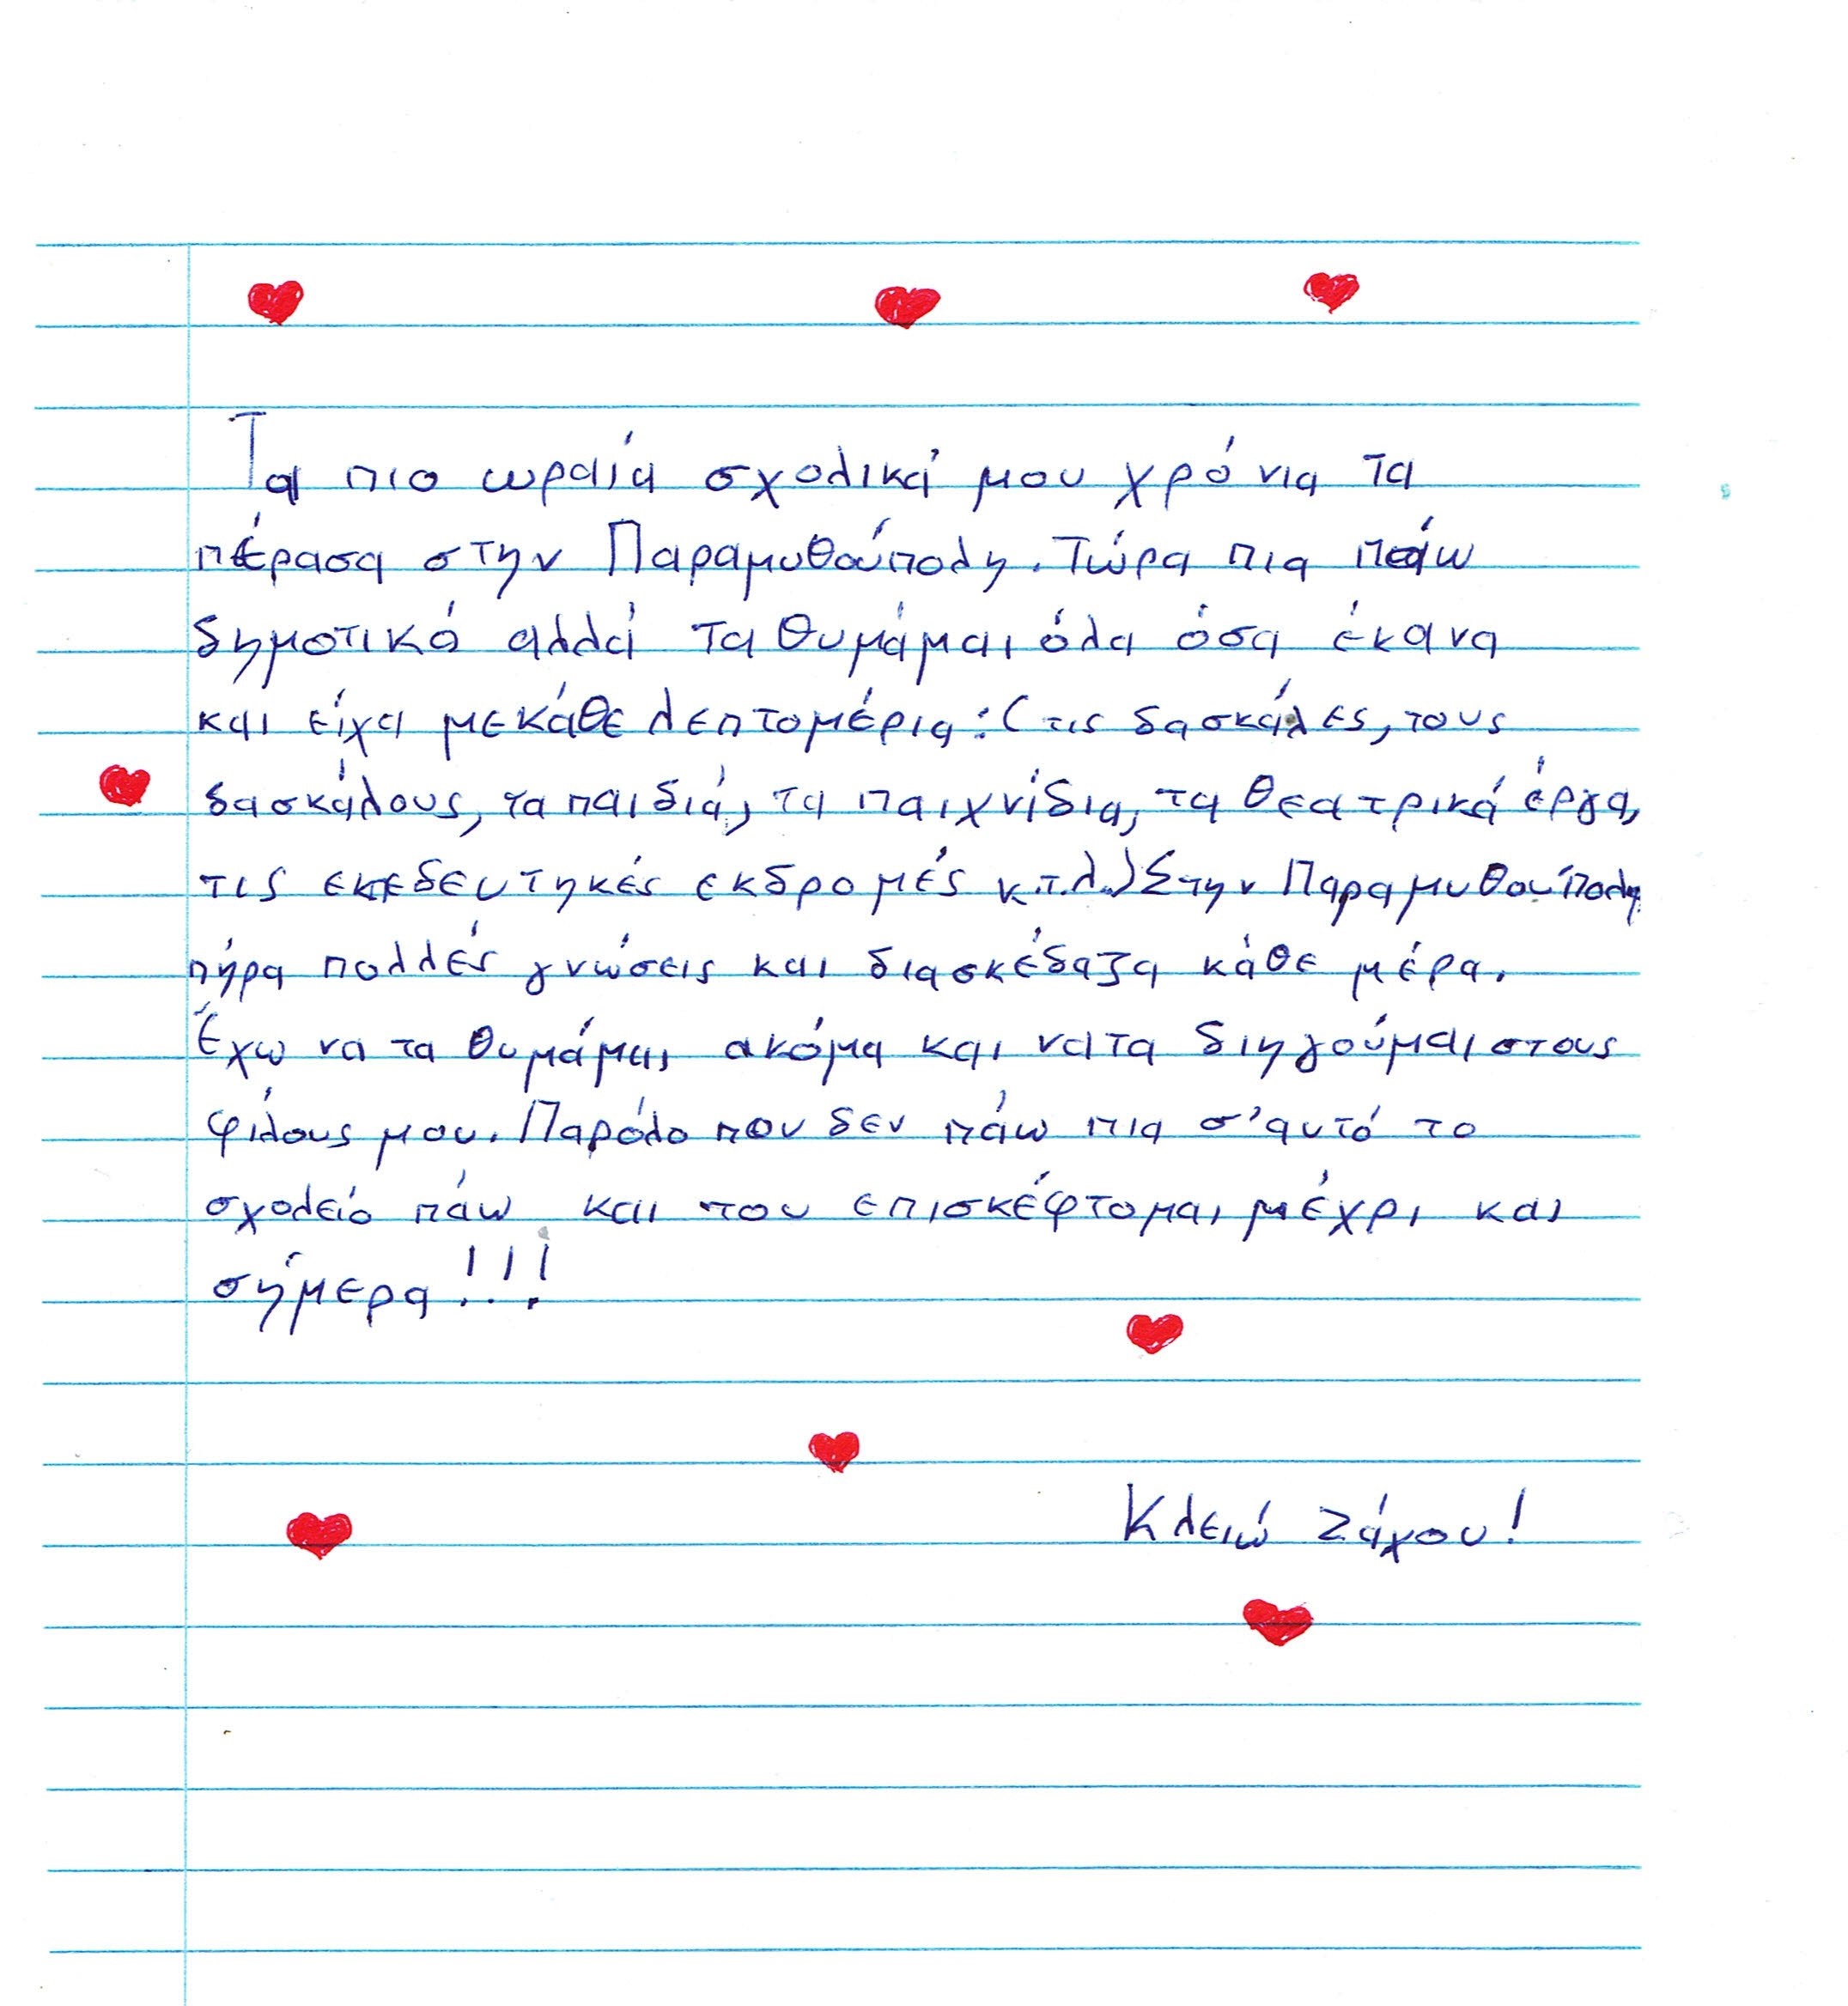 Τα πιο ωραία σχολικά μου χρόνια τα
πέρασα στην Παραμυθούπολη. Τώρα πια πάω
δημοτικό αλλά τα θυμάμαι όλα όσα έκανα
και είχα με κάθε λεπτομέρια: (τις δασκάλες, τους
δασκάλους, τα παιδιά, τα παιχνίδια, τα θεατρικά έργα,
τις εκπεδευτηκές εκδρομές κ.τ.λ.) Στην Παραμυθούπολη
πήρα πολλές γνώσεις και διασκέδαζα κάθε μέρα.
Έχω να τα θυμάμαι ακόμα και να τα διηγούμαι στους
φίλους μου. Παρόλο που δεν πάω πια σ'αυτό το
σχολείο πάω και του επισκέφτομαι μέχρι και
σήμερα!!!
Κλειώ Ζάχου!